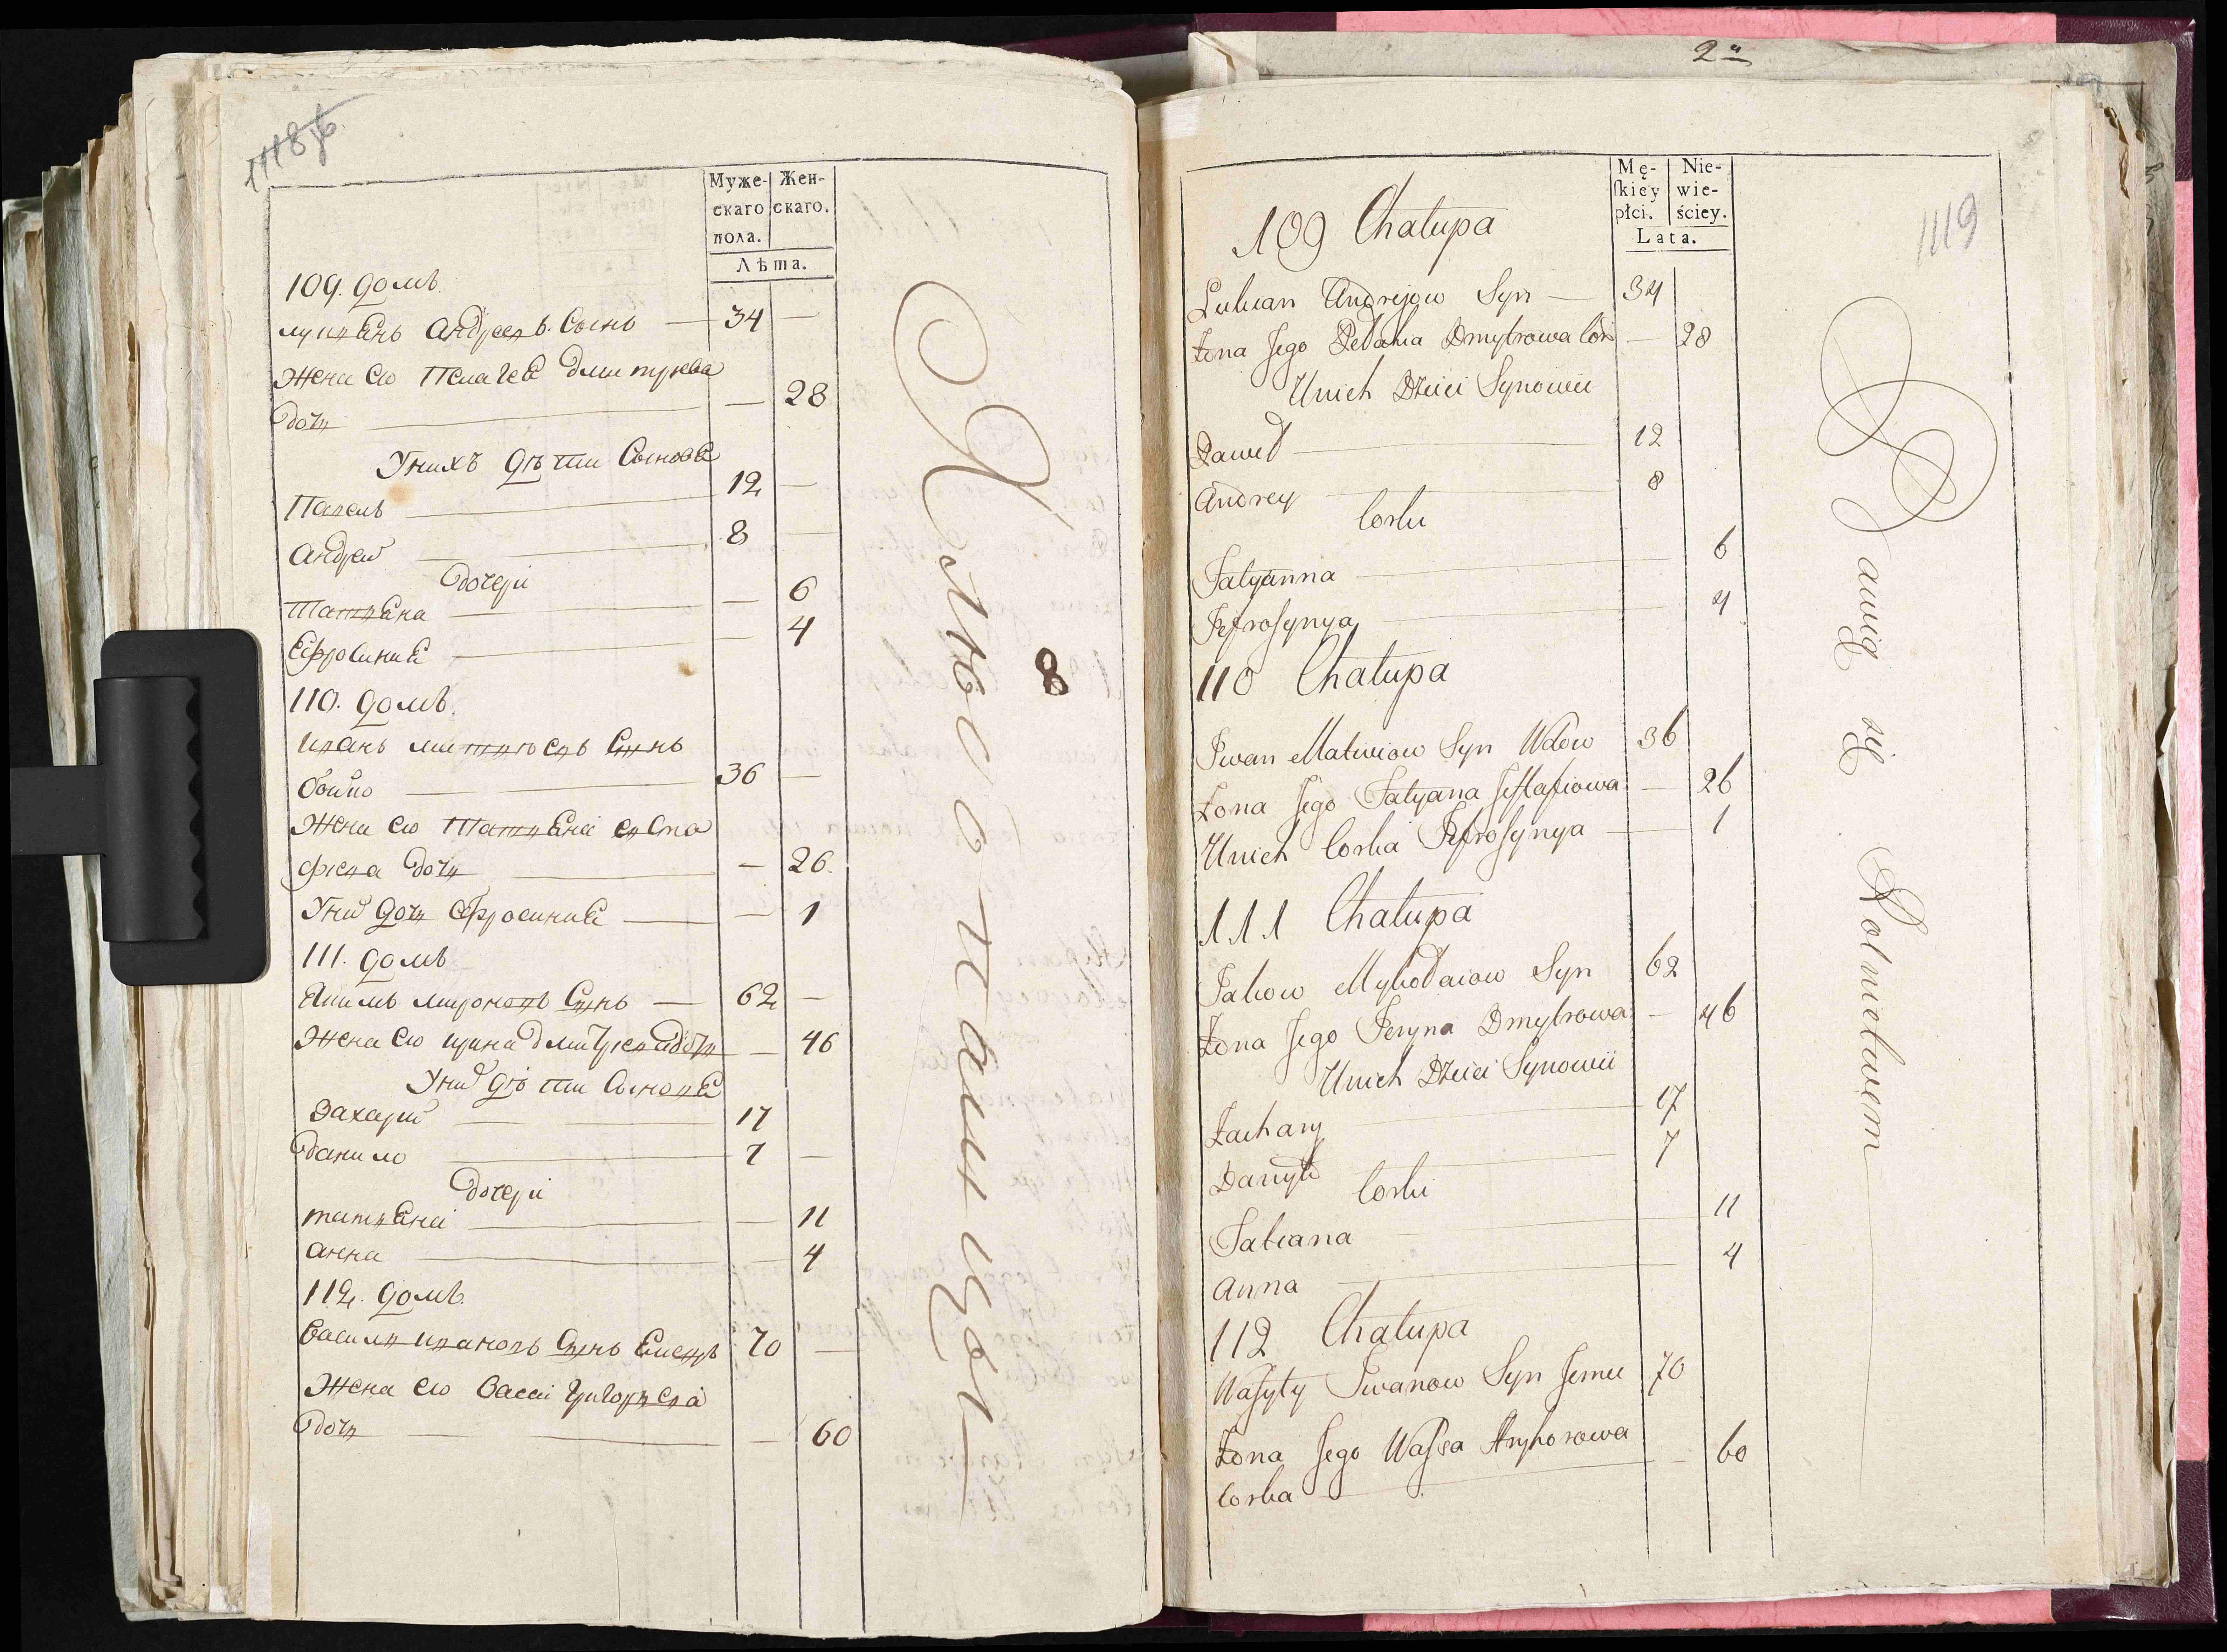 1118 об.
Муже-
скаго
пола.
Жен-
скаго.
Лѣта.
109. домъ.
лукянъ андреевъ. Сынъ — 34 —
Жена его Пелагея дмитрева
дочь — — 28
Унихъ дѣти Сынове
Павелъ — 12 —
андрей — 8 —
дочери
татяна — — 6
Ефросиния — — 4
110. домъ.
иванъ Сынъ
бойко — 36 —
Жена его Татяна
дочь — — 26.
Уних дочь ефросиния — — 1
111. домъ
мироновъ Сынъ — 62 —
Жена его ирина дмитрева дочь — 46
Уних дѣти Сынове
Захарий — 17
данило — 7 —
дочери
татяна — — 11
анна — — 4
112. домъ.
Василь ивановъ Сынъ 70 —
Жена его Васса григорева
дочь — — 60
8
2
1119
Mę-
skiey
płci.
Nie-
wie-
ściey.
Lata.
109 Chałupa
Lukian Andrejow Syn — 34
Żona Jego Pełahia Dmytrowa — 28
Unich Dzieci Synowie
Paweł — 12
Andrey — 8
Corki
Tatyanna — 6
Jefrosynya — 4
110 Chałupa
Iwan Matwiow Syn 36
Żona Jego Tatyana — 26
Unich Corka Jefrosynya — 1
111 Chałupa
Jakow Mykołaiow Syn 62
Żona Jego Jeryna Dmytrowa — 46
Unich Dzieci Synowie
Zachary — 17
Danyło — 7
Corki
Tatiana — 11
Anna — 4
112 Chałupa
Wasyly Iwanow Syn 70
Żona Jego Wassa Hryhorowa — 60
Corka —
Bawią się Rolnictwem